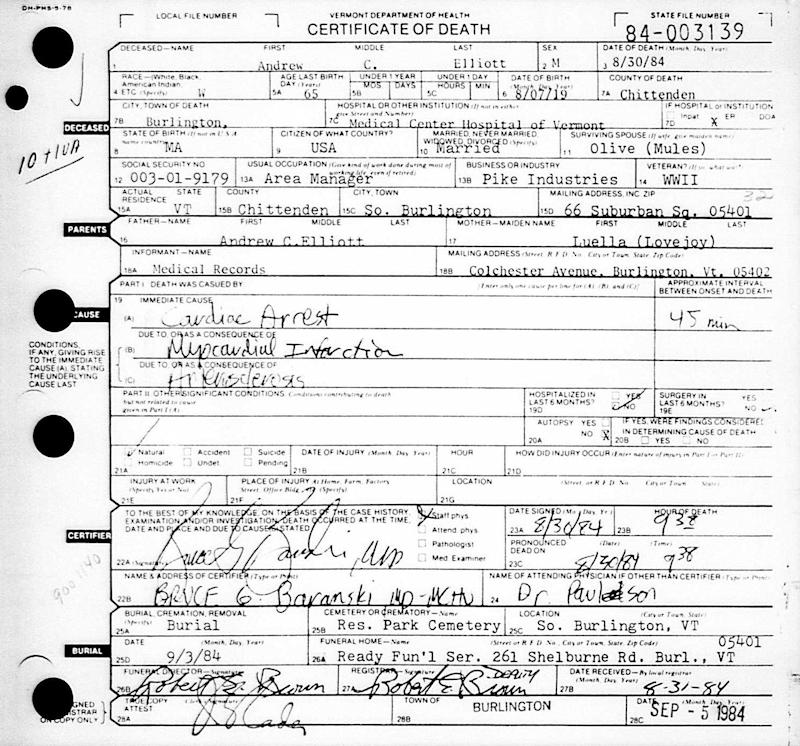 DH-PHS-5-78
LOCAL FILE NUMBER
VERMONT DEPARTMENT OF HEALTH
CERTIFICATE OF DEATH
STATE FILE NUMBER
84-003139
DECEASED—NAME FIRST MIDDLE LAST SEX DATE OF DEATH (Month, Day, Year)
1 Andrew C. Elliott 2 M 3 8/30/84
RACE—(White, Black, American Indian, ETC. (Specify) AGE LAST BIRTH DAY (Years) UNDER 1 YEAR MOS DAYS UNDER 1 DAY HOURS MIN DATE OF BIRTH (Month, Day, Year) COUNTY OF DEATH
4 W 5A 65 5B 5C 6 8/07/19 7A Chittenden
CITY, TOWN OF DEATH HOSPITAL OR OTHER INSTITUTION (If not in either give Street and Number) IF HOSPITAL or INSTITUTION
7B Burlington, 7C Medical Center Hospital of Vermont 7D Inpat X ER DOA
DECEASED
STATE OF BIRTH (If not in U.S.A. name country) CITIZEN OF WHAT COUNTRY? MARRIED, NEVER MARRIED, WIDOWED, DIVORCED (Specify) SURVIVING SPOUSE (If wife, give maiden name)
8 MA 9 USA 10 Married 11 Olive (Mules)
10+1UA
SOCIAL SECURITY NO USUAL OCCUPATION (Give kind of work done during most of working life, even if retired) BUSINESS OR INDUSTRY VETERAN? (If so, what war)
12 003-01-9179 13A Area Manager 13B Pike Industries 14 WWII
ACTUAL RESIDENCE STATE COUNTY CITY, TOWN MAILING ADDRESS, INC. ZIP 32
15A VT 15B Chittenden 15C So. Burlington 15D 66 Suburban Sq. 05401
PARENTS
FATHER—NAME FIRST MIDDLE LAST MOTHER—MAIDEN NAME FIRST MIDDLE LAST
16 Andrew C.Elliott 17 Luella (Lovejoy)
INFORMANT—NAME MAILING ADDRESS (Street, R.F.D. No., City or Town, State, Zip Code)
18A Medical Records 18B Colchester Avenue, Burlington, Vt. 05402
PART I DEATH WAS CAUSED BY (Enter only one cause per line for (A), (B), and (C)) APPROXIMATE INTERVAL BETWEEN ONSET AND DEATH
19 IMMEDIATE CAUSE
CAUSE
(A) Cardiac Arrest 45 min
DUE TO, OR AS A CONSEQUENCE OF
CONDITIONS, IF ANY, GIVING RISE TO THE IMMEDIATE CAUSE (A), STATING THE UNDERLYING CAUSE LAST
(B) Myocardial Infarction
DUE TO, OR AS A CONSEQUENCE OF
(C) Arteriosclerosis
PART II OTHER SIGNIFICANT CONDITIONS Conditions contributing to death but not related to cause given in Part I (A)
HOSPITALIZED IN LAST 6 MONTHS? 19D YES NO
SURGERY IN LAST 6 MONTHS? 19E YES NO
AUTOPSY YES NO X 20A
IF YES, WERE FINDINGS CONSIDERED IN DETERMINING CAUSE OF DEATH 20B YES NO
Natural Accident Suicide DATE OF INJURY (Month, Day, Year) HOUR HOW DID INJURY OCCUR (Enter nature of injury in Part I or Part II)
Homicide Undet Pending
21A 21B 21C 21D
INJURY AT WORK (Specify Yes or No) PLACE OF INJURY At Home, Farm, Factory, Street, Office Bldg LOCATION (Street, or R.F.D. No. City or Town State)
21E 21F 21G
CERTIFIER
TO THE BEST OF MY KNOWLEDGE, ON THE BASIS OF THE CASE HISTORY, EXAMINATION AND/OR INVESTIGATION, DEATH OCCURRED AT THE TIME, DATE AND PLACE AND DUE TO CAUSE(S) STATED
Staff phys.
Attend. phys.
Pathologist
Med Examiner
DATE SIGNED (Month, Day, Yr.) HOUR OF DEATH
23A 8/30/84 23B 9 38
PRONOUNCED DEAD ON (Date) (Time)
23C 8/30/84 9 38
22A (Signature) MD
NAME & ADDRESS OF CERTIFIER (Type or Print) NAME OF ATTENDING PHYSICIAN IF OTHER THAN CERTIFIER (Type or Print)
22B BRUCE G. Baranski MD - MCHV 24 Dr Paulson
9001140
BURIAL, CREMATION, REMOVAL (Specify) CEMETERY OR CREMATORY—Name LOCATION (City or Town, State)
25A Burial 25B Res. Park Cemetery 25C So. Burlington, VT
BURIAL
DATE (Month, Day, Year) FUNERAL HOME—Name (Street, R.F.D. No., City or Town, State, Zip Code) 05401
25D 9/3/84 26A Ready Fun'l Ser. 261 Shelburne Rd. Burl., VT
FUNERAL DIRECTOR—Signature REGISTRAR—Signature DATE RECEIVED—By local registrar (Month, Day, Year)
26B Robert E. Brown 27A Robert E Brown DEPUTY 27B 8-31-84
TRUE COPY ATTEST Clerk TOWN OF DATE
28A 28B BURLINGTON 28C SEP - 5 1984
SIGNED
REGISTRAR
ON COPY ONLY